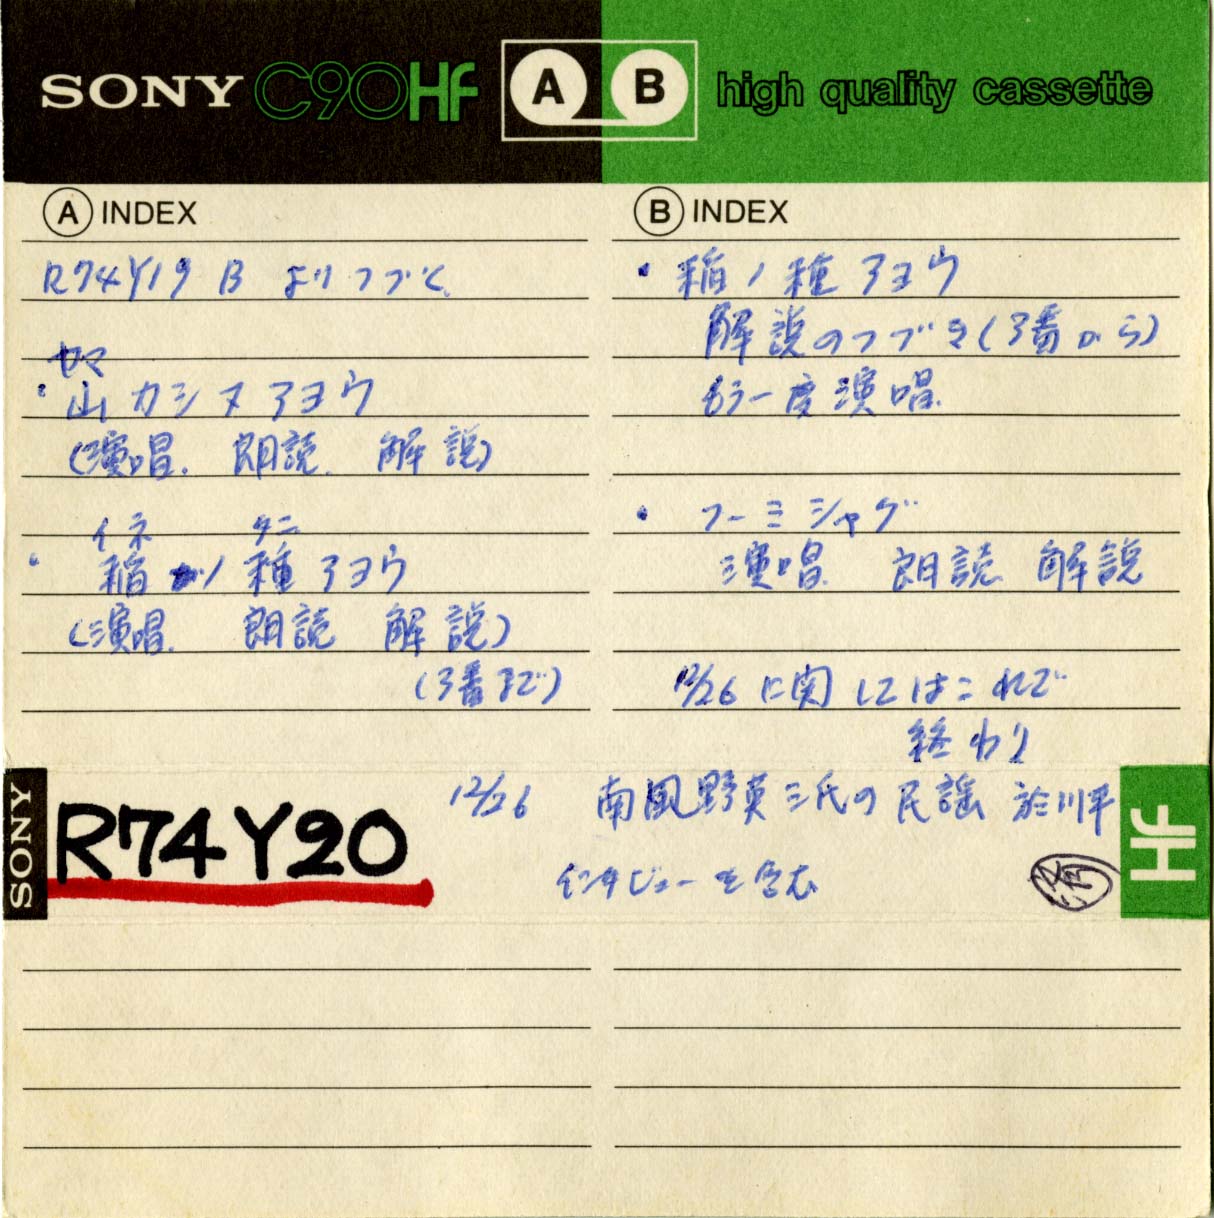 SONY C90Hf A B high quality cassette
A INDEX
R74Y19 B よりつづく
ヤマ
・山カシヌアヨウ
(演唱. 朗読. 解説)
イネ タニ
・稲ノ種アヨウ
(演唱. 朗読 解説)
(3番まで)
B INDEX
・稲ノ種アヨウ
解説のつづき(3番から)
もう一度演唱.
・フーミシャグ
演唱. 朗読 解説
12/26に関してはこれで
終わり
SONY
R74Y20
12/26 南風野英三氏の民謡 於川平
インタビューを含む
Hf